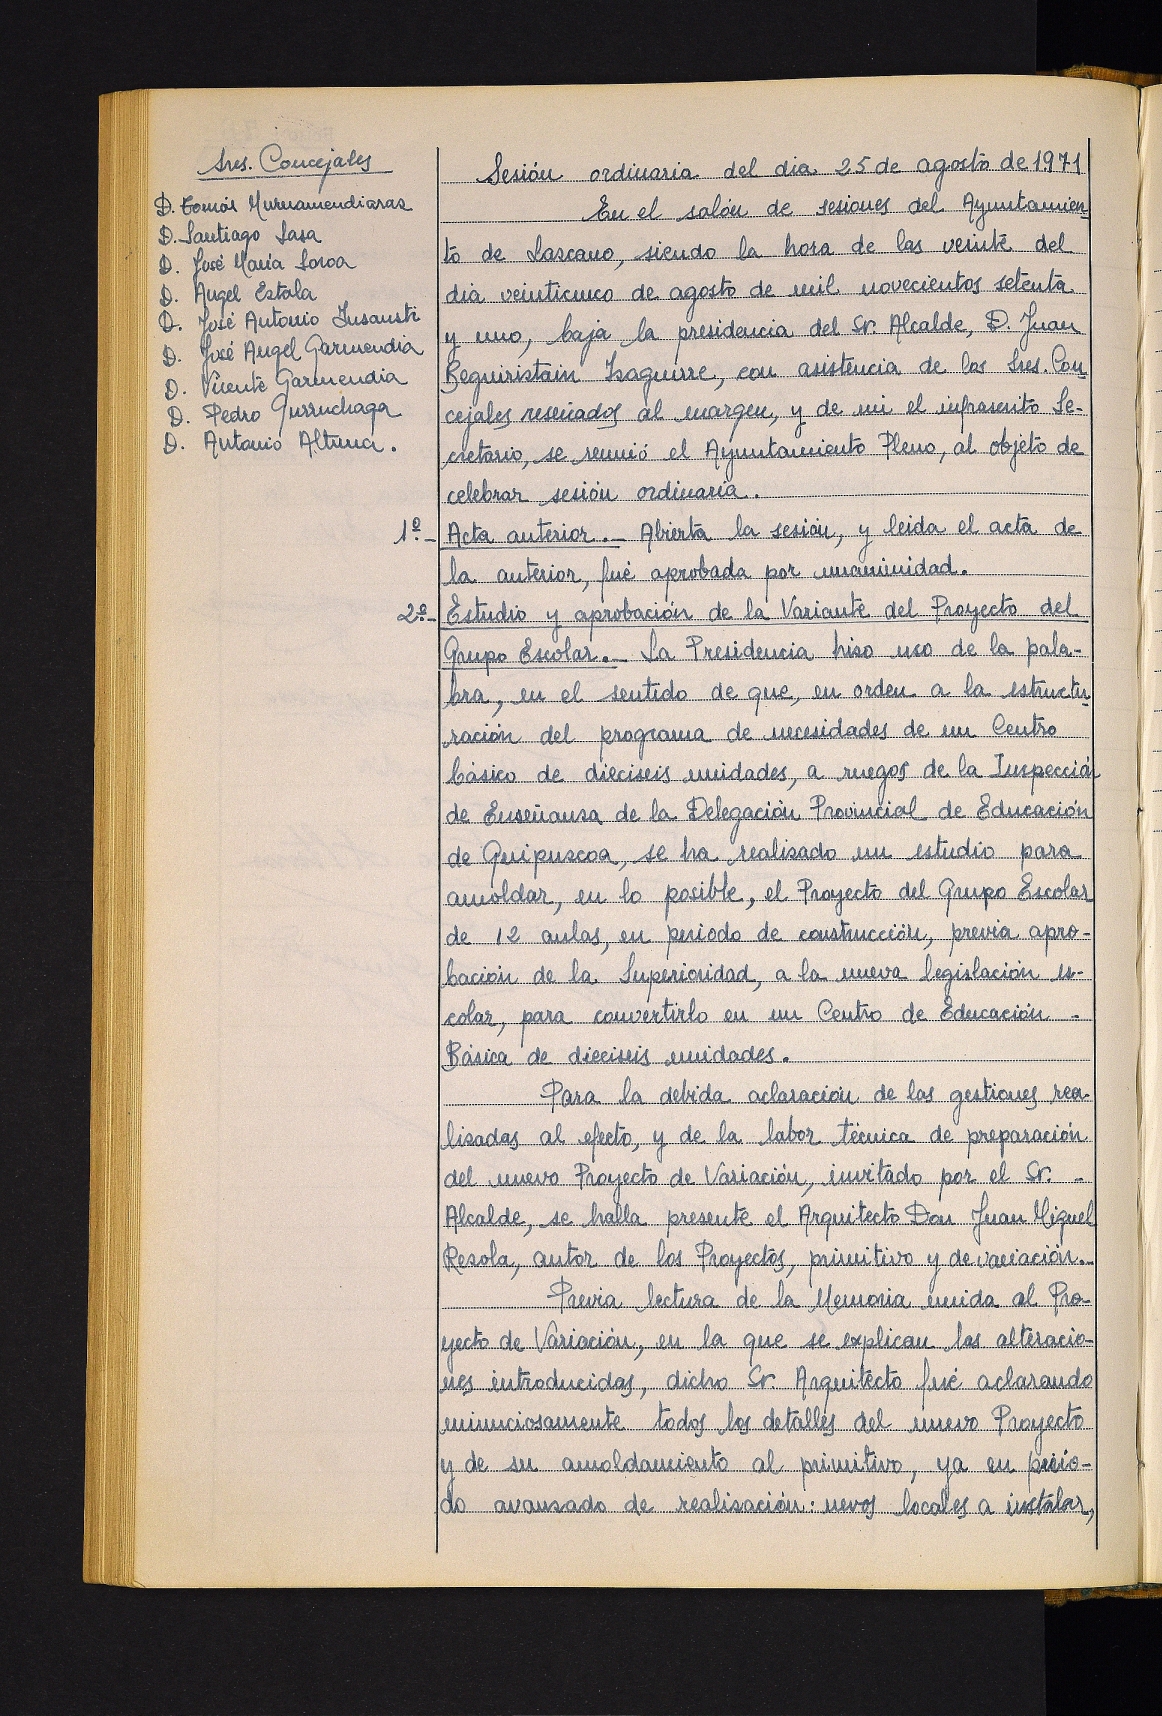 Sres. Concejales
D. Tomás Muruamendiaraz
D. Santiago Sasa
D. José María Soroa
D. Angel Estala
D. José Antonio Insausti
D. José Angel Garmendia
D. Vicente Garmendia
D. Pedro Gurruchaga
D. Antonio Altuna.
Sesión ordinaria del dia 25 de agosto de 1971
En el salón de sesiones del Ayuntamien-
to de Lazcano, siendo la hora de las veinte del
dia veinticinco de agosto de mil novecientos setenta
y uno, baja la presidencia del Sr. Alcalde, D. Juan
Beguiristain Izaguirre, con asistencia de los Sres. Con-
cejales reseñados al margen, y de mi el infrascrito Se-
cretario, se reunió el Ayuntamiento Pleno, al objeto de
celebrar sesión ordinaria.
1º.- Acta anterior.- Abierta la sesión, y leida el acta de
la anterior, fué aprobada por unanimidad.
2º.- Estudio y aprobación de la Variante del Proyecto del
Grupo Escolar.- La Presidencia hizo uso de la pala-
bra, en el sentido de que, en orden a la estructu-
ración del programa de necesidades de un Centro
básico de dieciseis unidades, a ruegos de la Inspección
de Enseñanza de la Delegación Provincial de Educación
de Guipuzcoa, se ha realizado un estudio para
amoldar, en lo posible, el Proyecto del Grupo Escolar
de 12 aulas, en periodo de construcción, previa apro-
bación de la Superioridad, a la nueva legislación es-
colar, para convertirlo en un Centro de Educación -
Básica de dieciseis unidades.
Para la debida aclaración de las gestiones rea-
lizadas al efecto, y de la labor técnica de preparación
del nuevo Proyecto de Variación, invitado por el Sr. -
Alcalde, se halla presente el Arquitecto Don Juan Miguel
Rezola, autor de los Proyectos, primitivo y de variación.-
Previa lectura de la Memoria unida al Pro-
yecto de Variación, en la que se explican las alteracio-
nes introducidas, dicho Sr. Arquitecto fué aclarando
minuciosamente todos los detalles del nuevo Proyecto
y de su amoldamiento al primitivo, ya en perio-
do avanzado de realización: nevos locales a instalar,